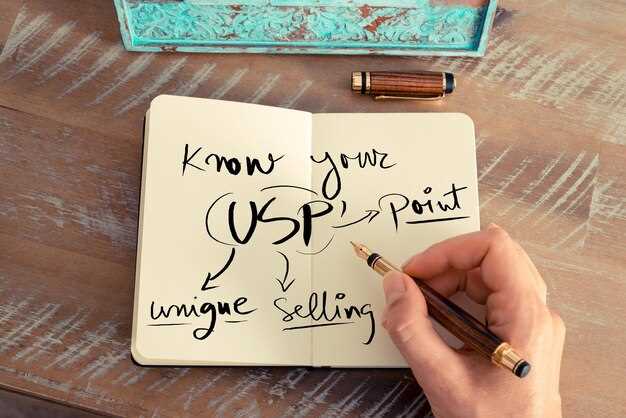 Know your
USP
Point
unique selling